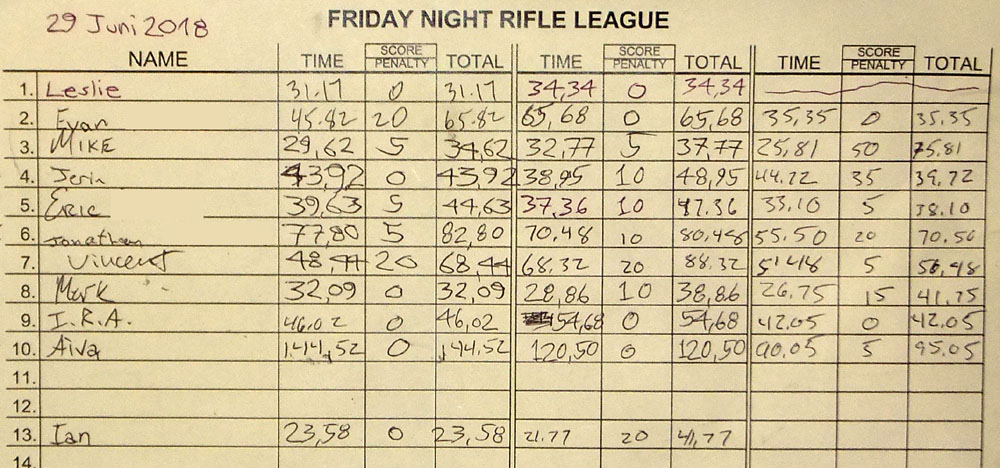 29 Juni 2018 FRIDAY NIGHT RIFLE LEAGUE
NAME TIME SCORE PENALTY TOTAL TIME SCORE PENALTY TOTAL TIME SCORE PENALTY TOTAL
1. Leslie 31.17 0 31.17 34,34 0 34,34
2. Evan 45.82 20 65.82 65,68 0 65,68 35,35 0 35.35
3. MIKE 29,62 5 34,62 32,77 5 37,77 25,81 50 75.81
4. Jerin 43,92 0 43,92 38,95 10 48,95 44.72 35 39.72
5. Eric 39,63 5 44,63 37,36 10 47.36 33.10 5 38.10
6. Jonathan 77,80 5 82,80 70.48 10 80,48 55.50 20 70.50
7. Vincent 48,44 20 68,44 68.32 20 88.32 51.48 5 56,48
8. Mark 32,09 0 32,09 28,86 10 38,86 26.75 15 41.75
9. I.R.A. 46.02 0 46,02 54,68 0 54,68 42.05 0 42.05
10. Aiva 144,52 0 144.52 120,50 0 120,50 90.05 5 95.05
11.
12.
13. Ian 23,58 0 23,58 21.77 20 41,77
14.